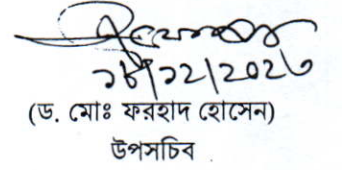 ২৮/১২/২০২৩
(ড. মোঃ ফরহাদ হোসেন)
উপসচিব